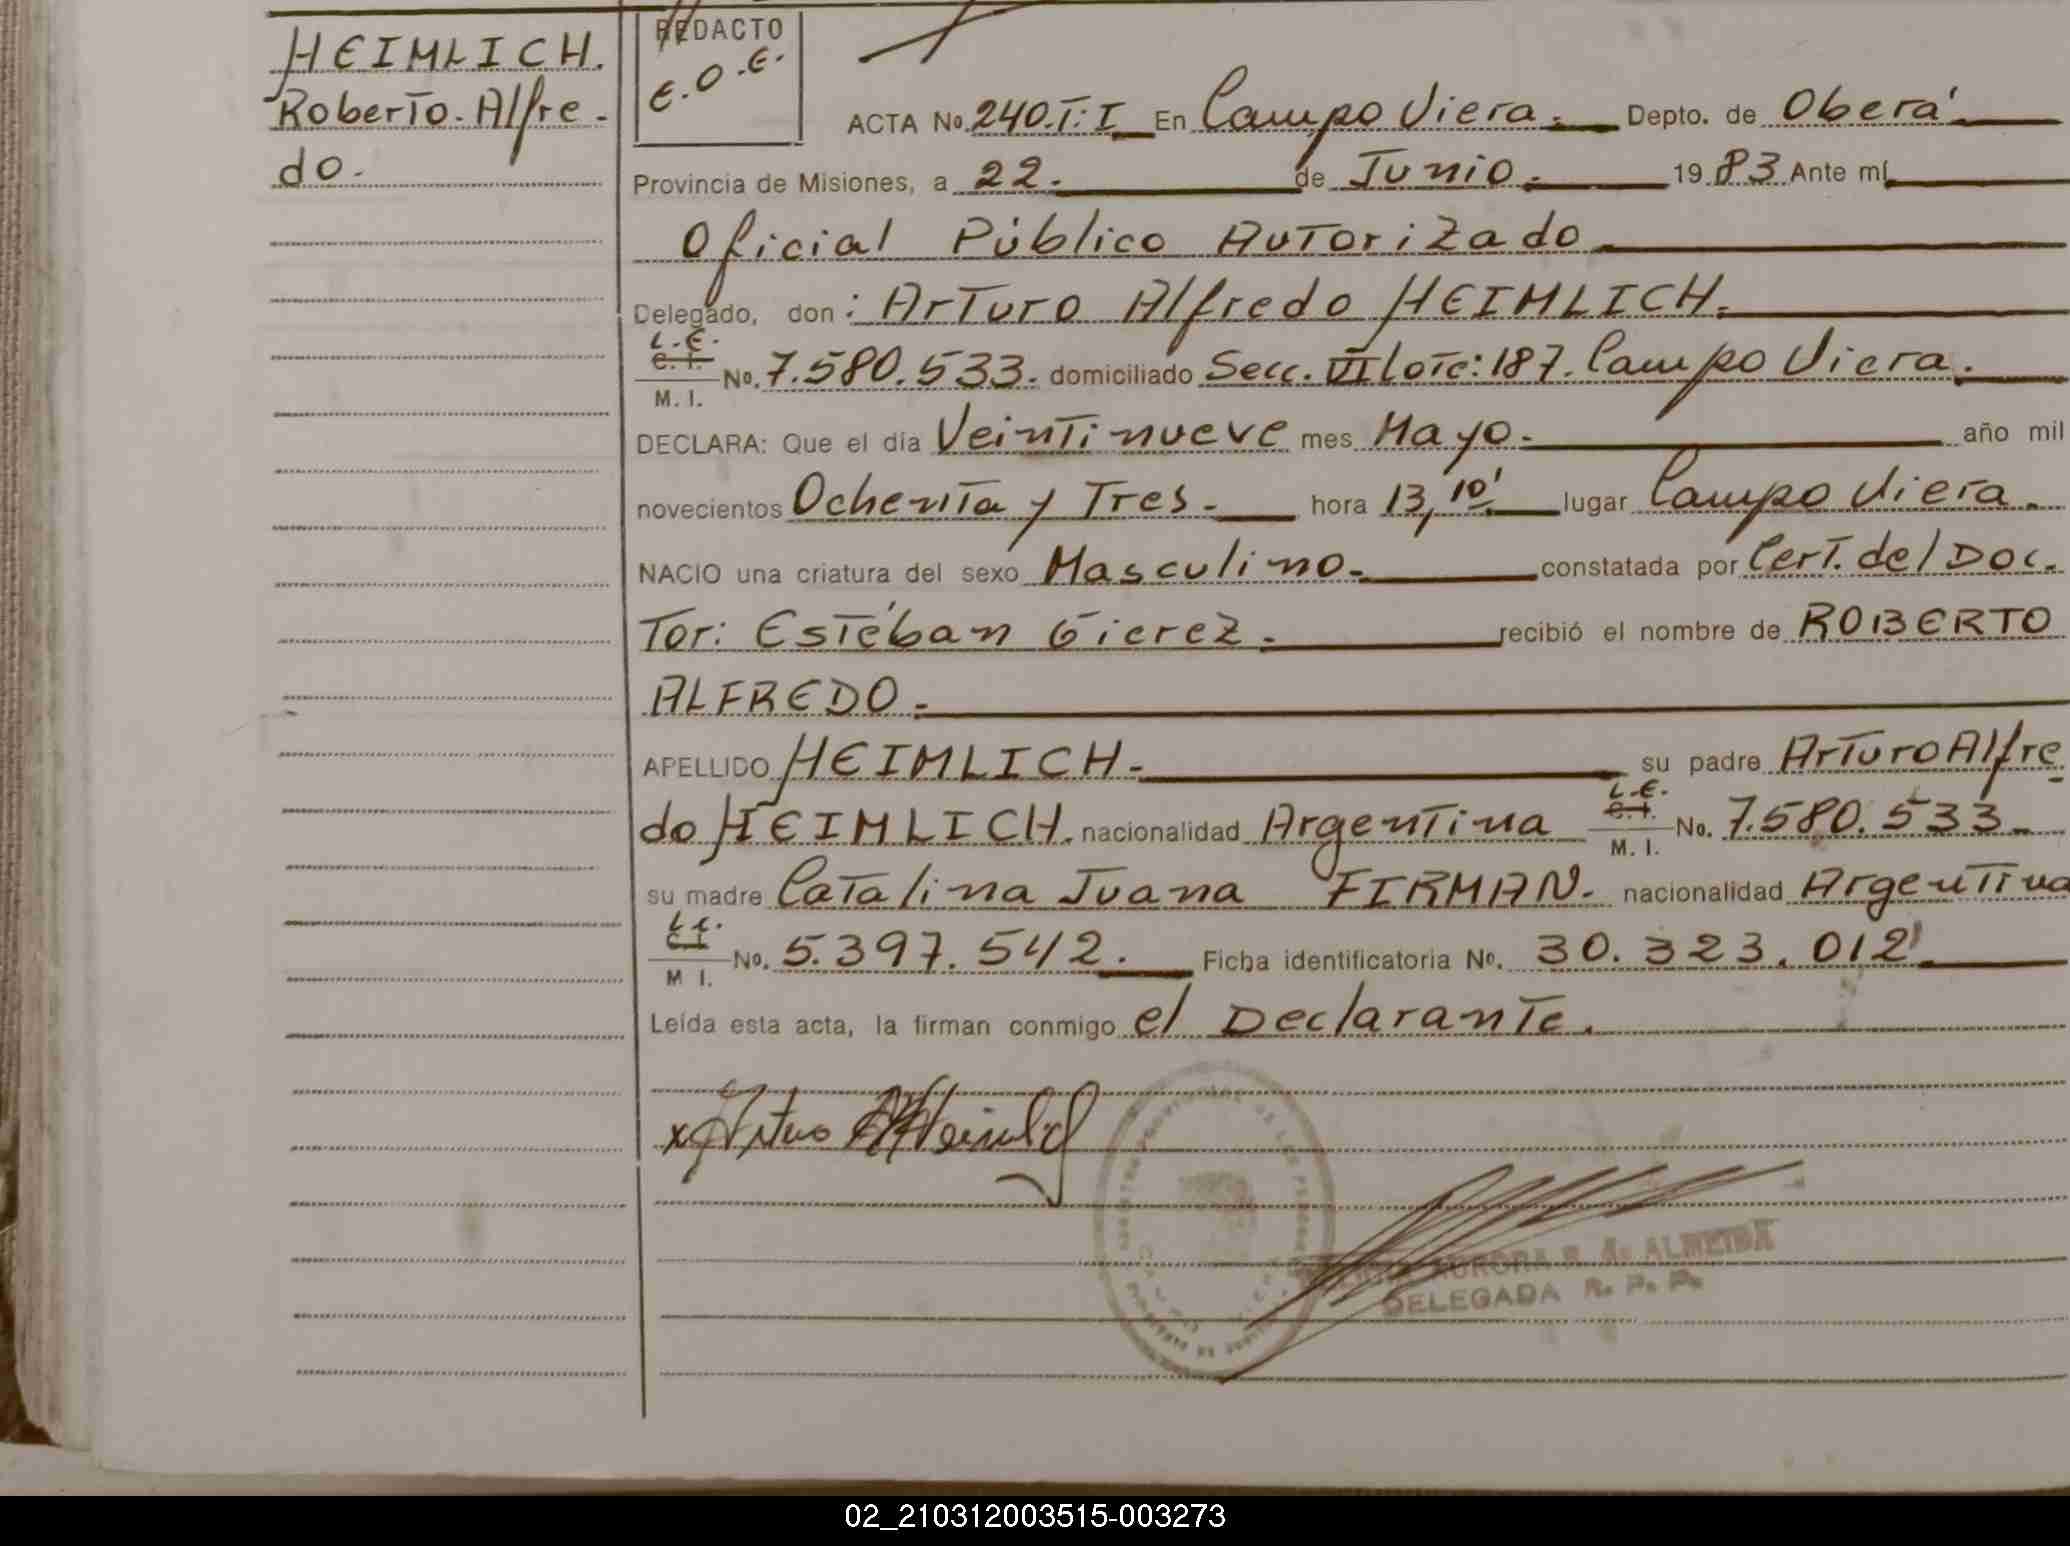 HEIMLICH.
Roberto. Alfre-
do.
REDACTO
E.O.E.
ACTA No. 240.T:I En Campo Viera. Depto. de Oberá
Provincia de Misiones, a 22. de Junio. 1983 Ante mí
Oficial Público Autorizado
Delegado, don: Arturo Alfredo HEIMLICH.
L.E.
C. I.
M. I. No. 7.580.533. domiciliado Secc. VII Lote: 187. Campo Viera.
DECLARA: Que el día Veintinueve mes Mayo. año mil
novecientos Ochenta y Tres. hora 13,10' lugar Campo Viera.
NACIO una criatura del sexo Masculino. constatada por Cert. del Doc.
Tor: Estéban Gierez. recibió el nombre de ROBERTO
ALFREDO.
APELLIDO HEIMLICH. su padre Arturo Alfre
L.E.
do HEIMLICH. nacionalidad Argentina C. I. M. I. No. 7.580.533.
su madre Catalina Juana FIRMAN. nacionalidad Argentina
L.C.
C. I.
M I. No. 5.397.542. Ficha identificatoria No. 30.323.012
Leída esta acta, la firman conmigo el Declarante.
x Arturo A Heimlich
AURORA R. de ALMEIDA
DELEGADA R. P. P.
02_210312003515-003273